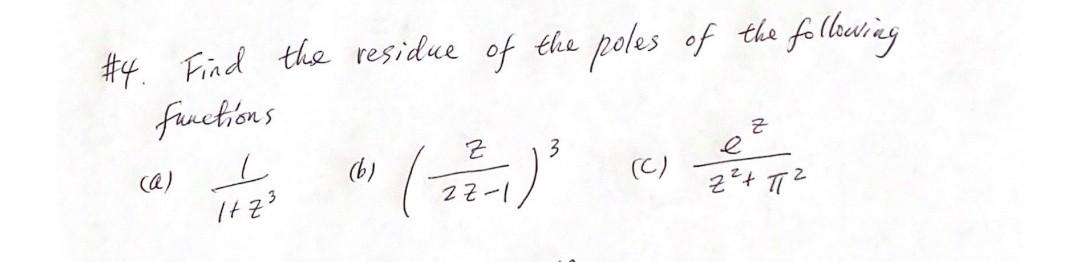 #4. Find the residue of the poles of the following
functions
(a) 1/(1+z³) (b) (z/(2z-1))³ (c) e^z/(z²+π²)